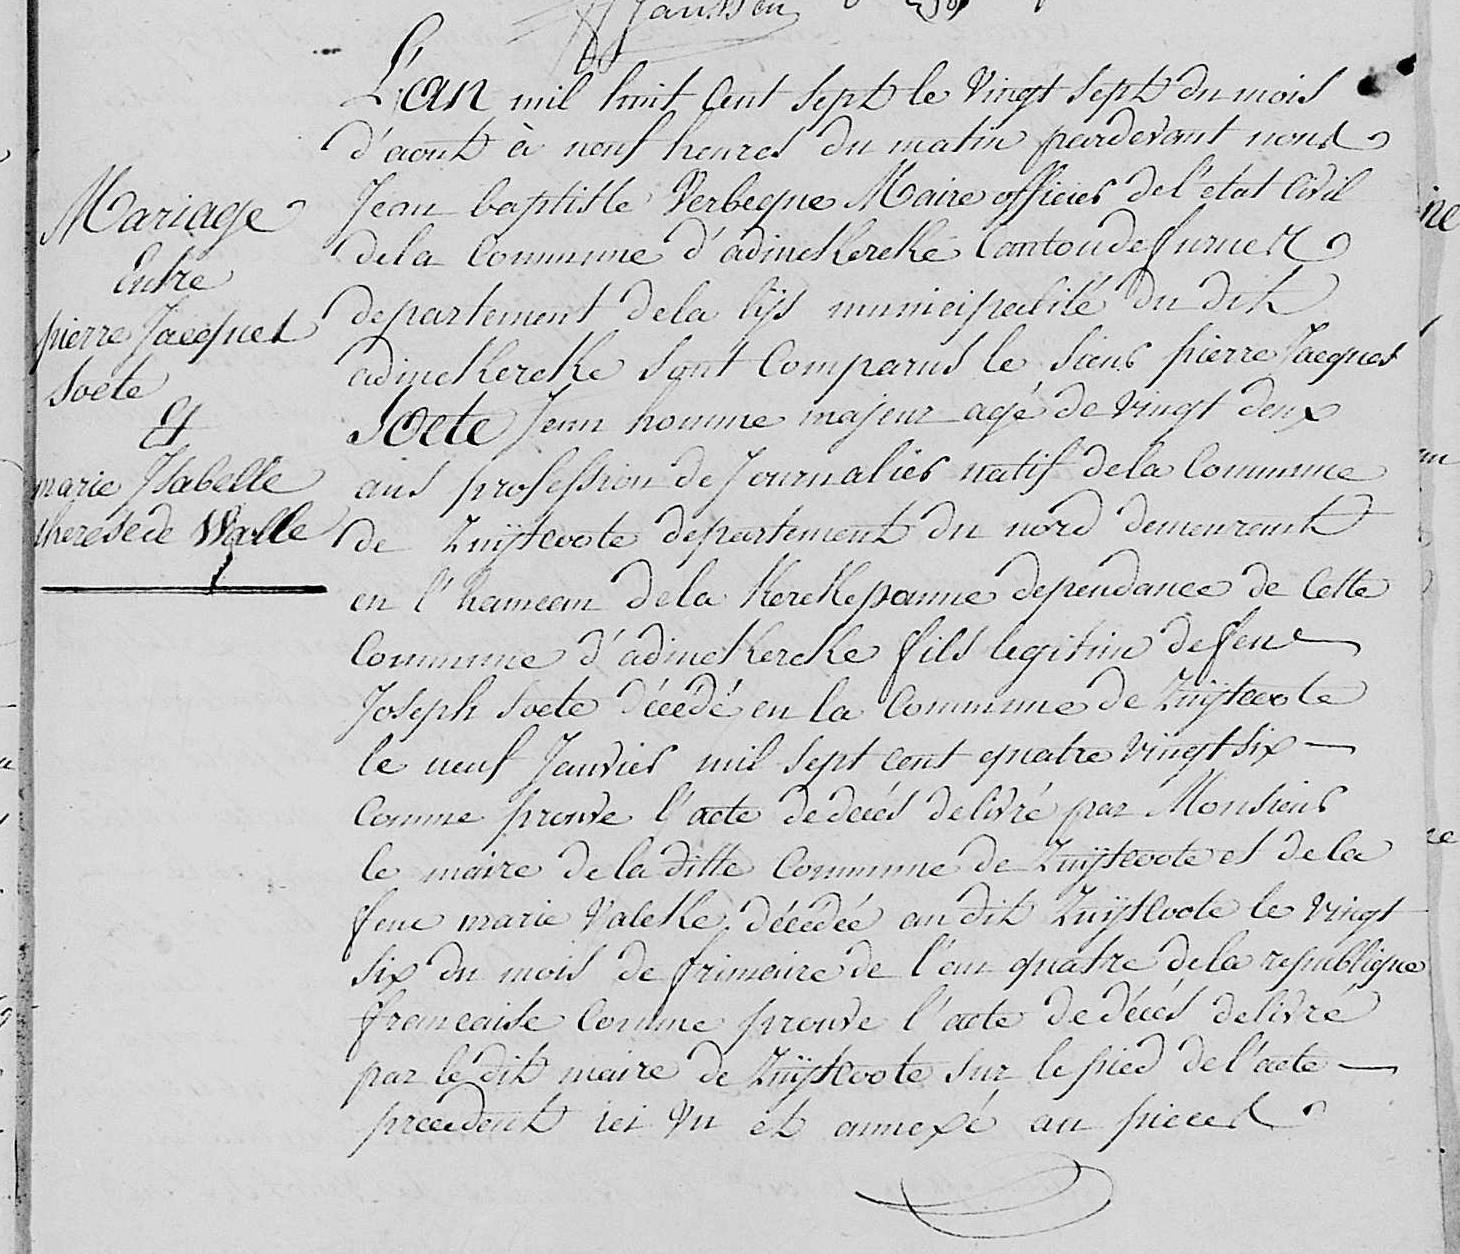 Janssen
L'an mil huit cent sept le vingt sept du mois
d'aout à neuf heures du matin pardevant nous
Jean baptiste Verbeque Maire officier de l'etat Civil
de la Commune d'adinckercke Canton de furnes
departement de la lijs municipalité du dit
adinckercke sont Comparus le sieur pierre Jacques
Soete Jeun homme majeur agé de vingt deux
ans profession de Journalier natif de la Commune
de Zuijtcoote departement du nord demeurant
en l'hameau de la Kerckepanne dependance de Cette
Commune d'adinckercke fils legitim de feu
Joseph Soete décedé en la Commune de Zuijtcoote
le neuf Janvier mil sept cent quatre vingt six
Comme prouve l'acte de decés delivré par Monsieur
le maire de la ditte Commune de Zuijtcoote et de la
feue marie Valcke décedée au dit Zuijtcoote le vingt
six du mois de frimaire de l'an quatre de la republique
francaise Comme prouve l'acte de décés delivré
par le dit maire de Zuijtcoote sur le pied de l'acte
precedent ici vu et annexé au pieces
Mariage
Entre
pierre Jacques
Soete
Et
marie Isabelle
therese de Walle